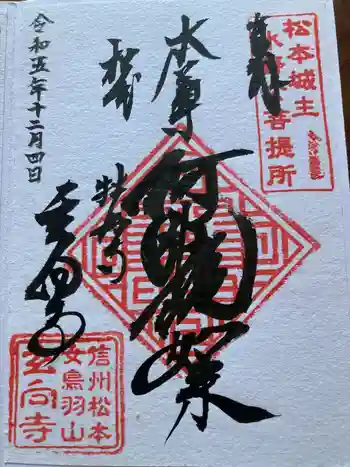 奉拝
松本城主
水野家菩提所
本尊
阿弥陀如来
牡丹の
玄向寺
令和五年十二月四日
信州松本
女鳥羽山
玄向寺